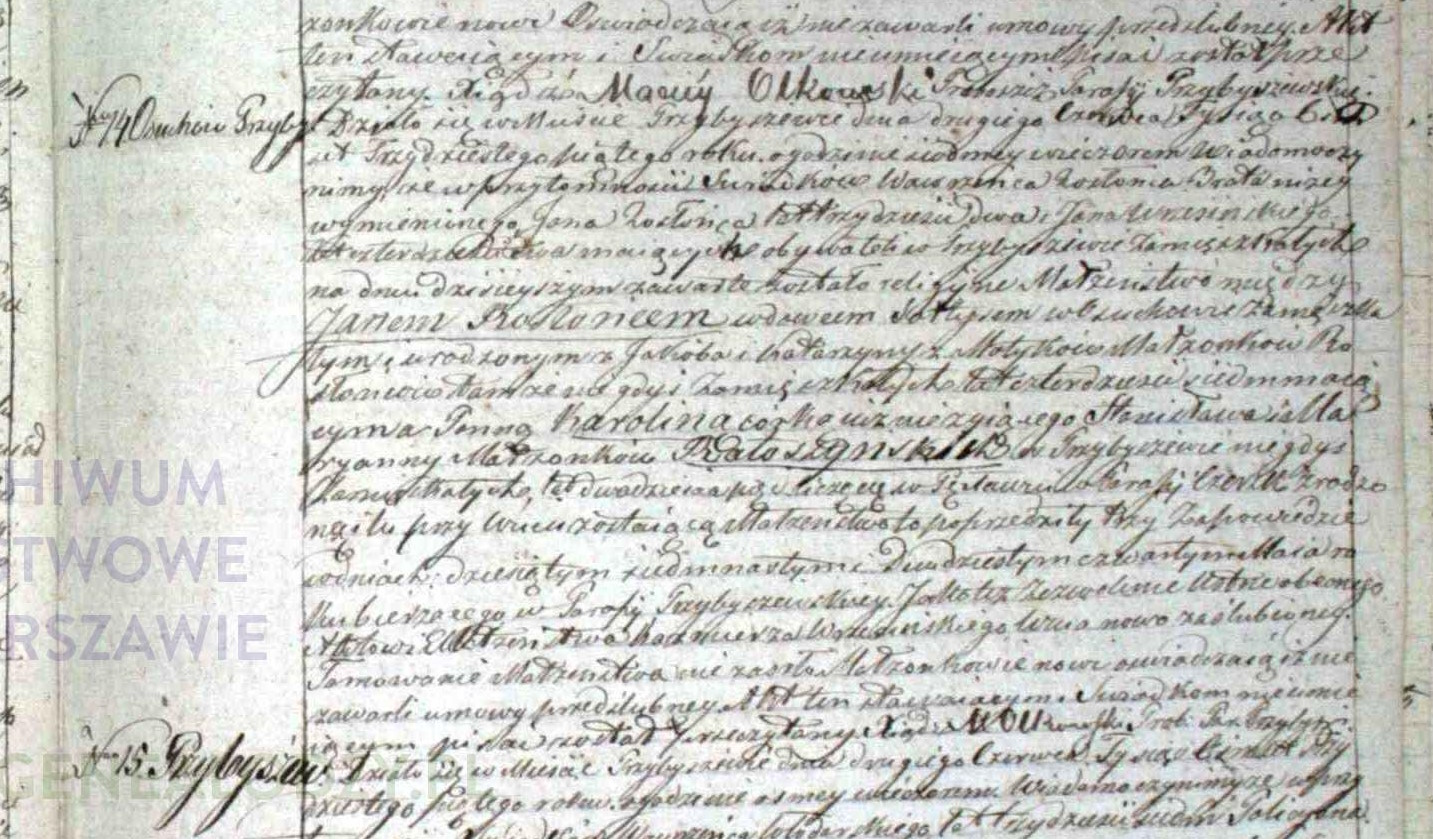 żonkowie nowi Oswiadczaią iż nie zawarli umowy przedslubney. Akt
ten stawaiącym i Swiadkom nieumieiącym pisać został prze
czytany. Xiądz Maciey Olkowski Proboszcz Parafij Przybyszewskiey.
Nro 14 Osuchow Przyby Działo się w Miescie Przybyszewie dnia drugiego Czerwca Tysiąc Osm
set Trzydziestego piątego roku. o godzinie siodmey wieczorem Wiadomo czy
nimy, że w przytomnosci Swiadkow Wawrzenca Rosłonia Brata niżey
wymienionego Jana Rosłońca lat trzydziesci dwa i Jana Wrzesinskiego
lat czterdziesci dwa maiących obywateli w Przybyszewie Zamięszkałych
na dniu dzisieyszym zawarte zostało religijne Małżeństwo między
Janem Rosłońcem wdowcem Sołtysem w Osuchowie Zamęszka
łym, urodzonym z Jakoba i Katarzyny z Motyków Małżonkow Ro
słoncow tamże niegdys Zamięszkałych lat czterdziesci siedm maią
cym a Panną Karoliną corką iuż nieżyiącego Stanisława i Ma
ryanny Małżonków w Przybyszewie niegdys
Zamieszkałych, lat dwadziescia liczącą w Parafij Czersk zrodzo
ną i tu przy Wuiu zostaiącą Małżenstwo to poprzedziły trzy Zapowiedzie
w dniach: dziesiątym siedmnastym i Dwudziestym czwartym Maia ro
ku bieżącego w Parafij Przybyszewskiey. Jako też Zezwolenie Ustne obecnego
Aktowi Małżenstwa Kazimierza Wrzesinskiego Wuia nowo zaslubioney.
Tamowanie Małżenstwa nie zaszło. Małżonkowie nowi oswiadczaią iż nie
zawarli umowy przedslubney. Akt ten stawaiącym i Swiadkom nieumie
iącym pisać został przeczytany. Xiądz M Olkowski. Prob: Par: Przybysz
Nro 15. Przybyszew Działo się w Miescie Przybyszewie dnia drugiego Czerwca Tysiąc Osmset Trzy
dziestego piątego roku. o godzinie osmey wieczorem. Wiadomo czynimy że w przy
Wawrzenca lat trzydziesci siedm i
ARCHIWUM
PAŃSTWOWE
WARSZAWIE
GENEALODZY.PL